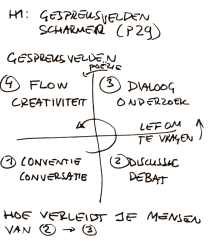 H1: GESPREKSVELDEN
SCHARMER (P29)
GESPREKSVELDEN
POËZIE
④ FLOW
CREATIVITEIT
③ DIALOOG
ONDERZOEK
LEF OM
TE VRAGEN
① CONVENTIE
CONVERSATIE
② DISCUSSIE
DEBAT
HOE VERLEIDT JE MENSEN
VAN ② → ③